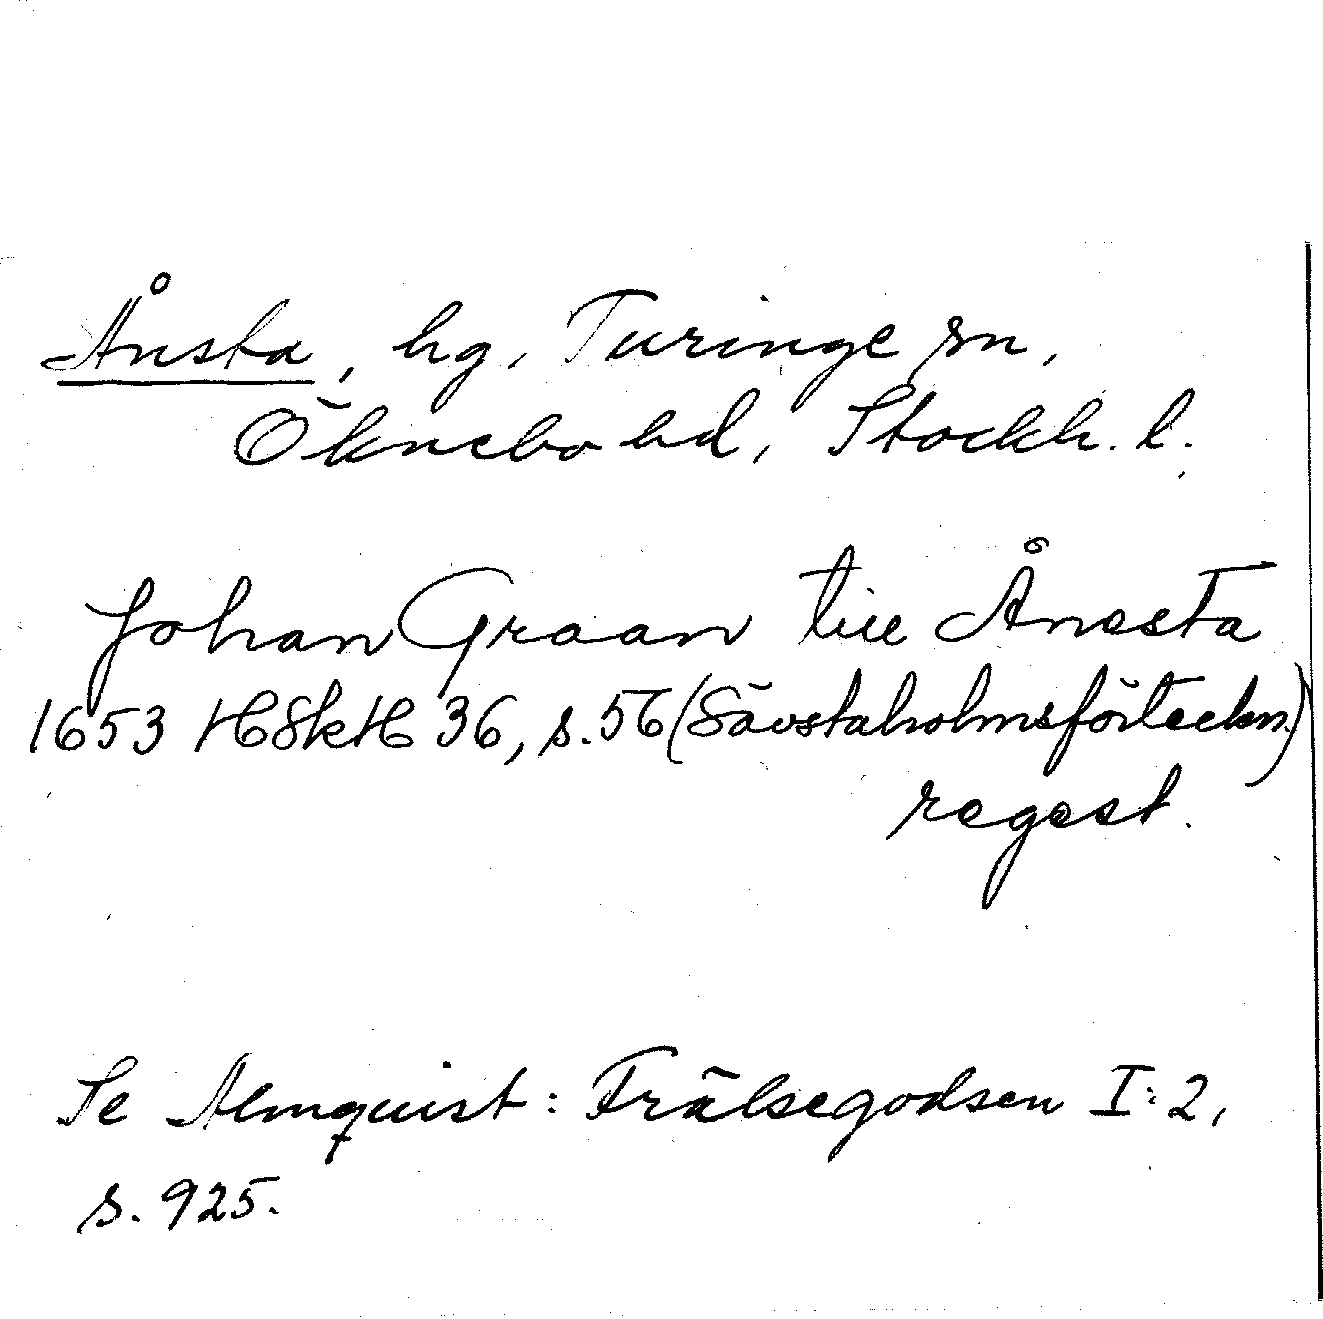 Ånsta, hg, Turinge sn,
Öknebo hd, Stockh. l.
Johan Graan till Ånesta
1653 HSkH 36, s. 56 (Sävstaholmsförteckn.)
regest.
Se Almquist: Frälsegodsen I:2,
s. 925.